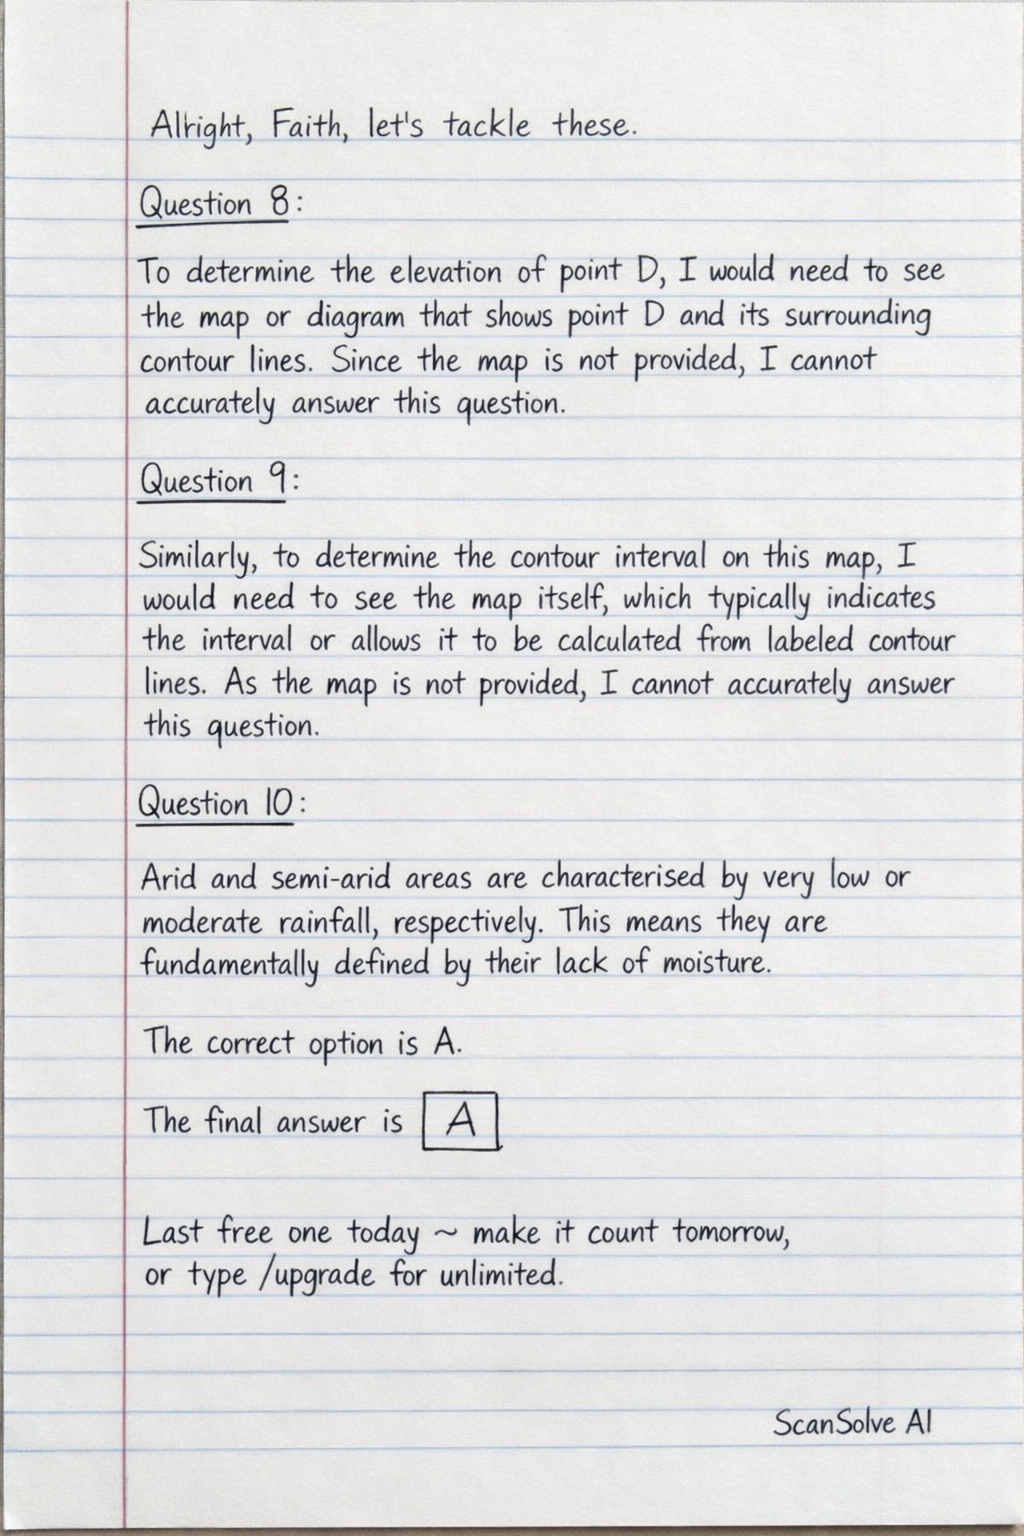 Alright, Faith, let's tackle these.
Question 8:
To determine the elevation of point D, I would need to see
the map or diagram that shows point D and its surrounding
contour lines. Since the map is not provided, I cannot
accurately answer this question.
Question 9:
Similarly, to determine the contour interval on this map, I
would need to see the map itself, which typically indicates
the interval or allows it to be calculated from labeled contour
lines. As the map is not provided, I cannot accurately answer
this question.
Question 10:
Arid and semi-arid areas are characterised by very low or
moderate rainfall, respectively. This means they are
fundamentally defined by their lack of moisture.
The correct option is A.
The final answer is A
Last free one today ~ make it count tomorrow,
or type /upgrade for unlimited.
ScanSolve AI